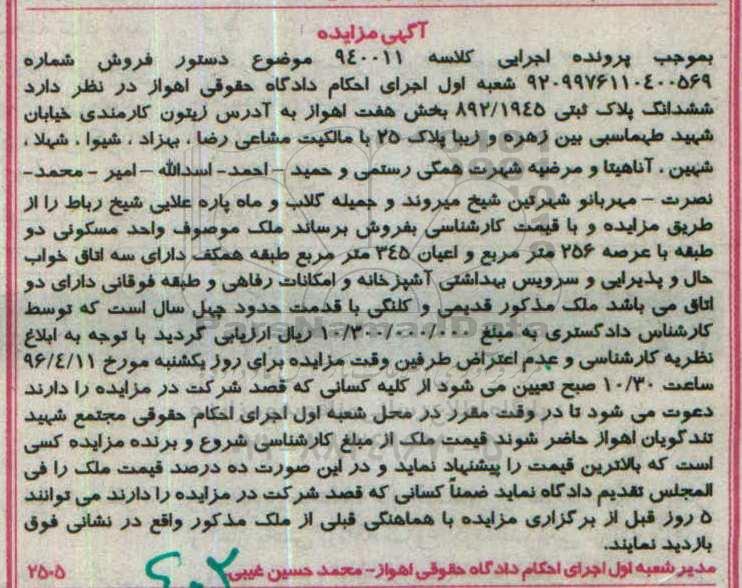 آگهی مزایده
بموجب پرونده اجرایی کلاسه ۹٤۰۰۱۱ موضوع دستور فروش شماره
۹۲۰۹۹۷۶۱۱۰٤۰۰۵۶۹ شعبه اول اجرای احکام دادگاه حقوقی اهواز در نظر دارد
ششدانگ پلاک ثبتی ۸۹۲/۱۹٤۵ بخش هفت اهواز به آدرس زیتون کارمندی خیابان
شهید طهماسبی بین زهره و زیبا پلاک ۲۵ با مالکیت مشاعی رضا ، بهزاد ، شیوا ، شهلا ،
شهین ، آناهیتا و مرضیه شهرت همگی رستمی و حمید – احمد- اسدالله – امیر – محمد-
نصرت – مهربانو شهرتین شیخ میروند و جمیله گلاب و ماه پاره علایی شیخ رباط را از
طریق مزایده و با قیمت کارشناسی بفروش برساند ملک موصوف واحد مسکونی دو
طبقه با عرصه ۲۵۶ متر مربع و اعیان ۳٤۵ متر مربع طبقه همکف دارای سه اتاق خواب
حال و پذیرایی و سرویس بهداشتی آشپزخانه و امکانات رفاهی و طبقه فوقانی دارای دو
اتاق می باشد ملک مذکور قدیمی و کلنگی با قدمت حدود چهل سال است که توسط
کارشناس دادگستری به مبلغ ۱۰/۳۰۰/۰۰۰/۰۰۰ ریال ارزیابی گردید با توجه به ابلاغ
نظریه کارشناسی و عدم اعتراض طرفین وقت مزایده برای روز یکشنبه مورخ ۹۶/٤/۱۱
ساعت ۱۰/۳۰ صبح تعیین می شود از کلیه کسانی که قصد شرکت در مزایده را دارند
دعوت می شود تا در وقت مقرر در محل شعبه اول اجرای احکام حقوقی مجتمع شهید
تندگویان اهواز حاضر شوند قیمت ملک از مبلغ کارشناسی شروع و برنده مزایده کسی
است که بالاترین قیمت را پیشنهاد نماید و در این صورت ده درصد قیمت ملک را فی
المجلس تقدیم دادگاه نماید ضمناً کسانی که قصد شرکت در مزایده را دارند می توانند
۵ روز قبل از برگزاری مزایده با هماهنگی قبلی از ملک مذکور واقع در نشانی فوق
بازدید نمایند.
مدیر شعبه اول اجرای احکام دادگاه حقوقی اهواز- محمد حسین غیبی
۲۵۰۵